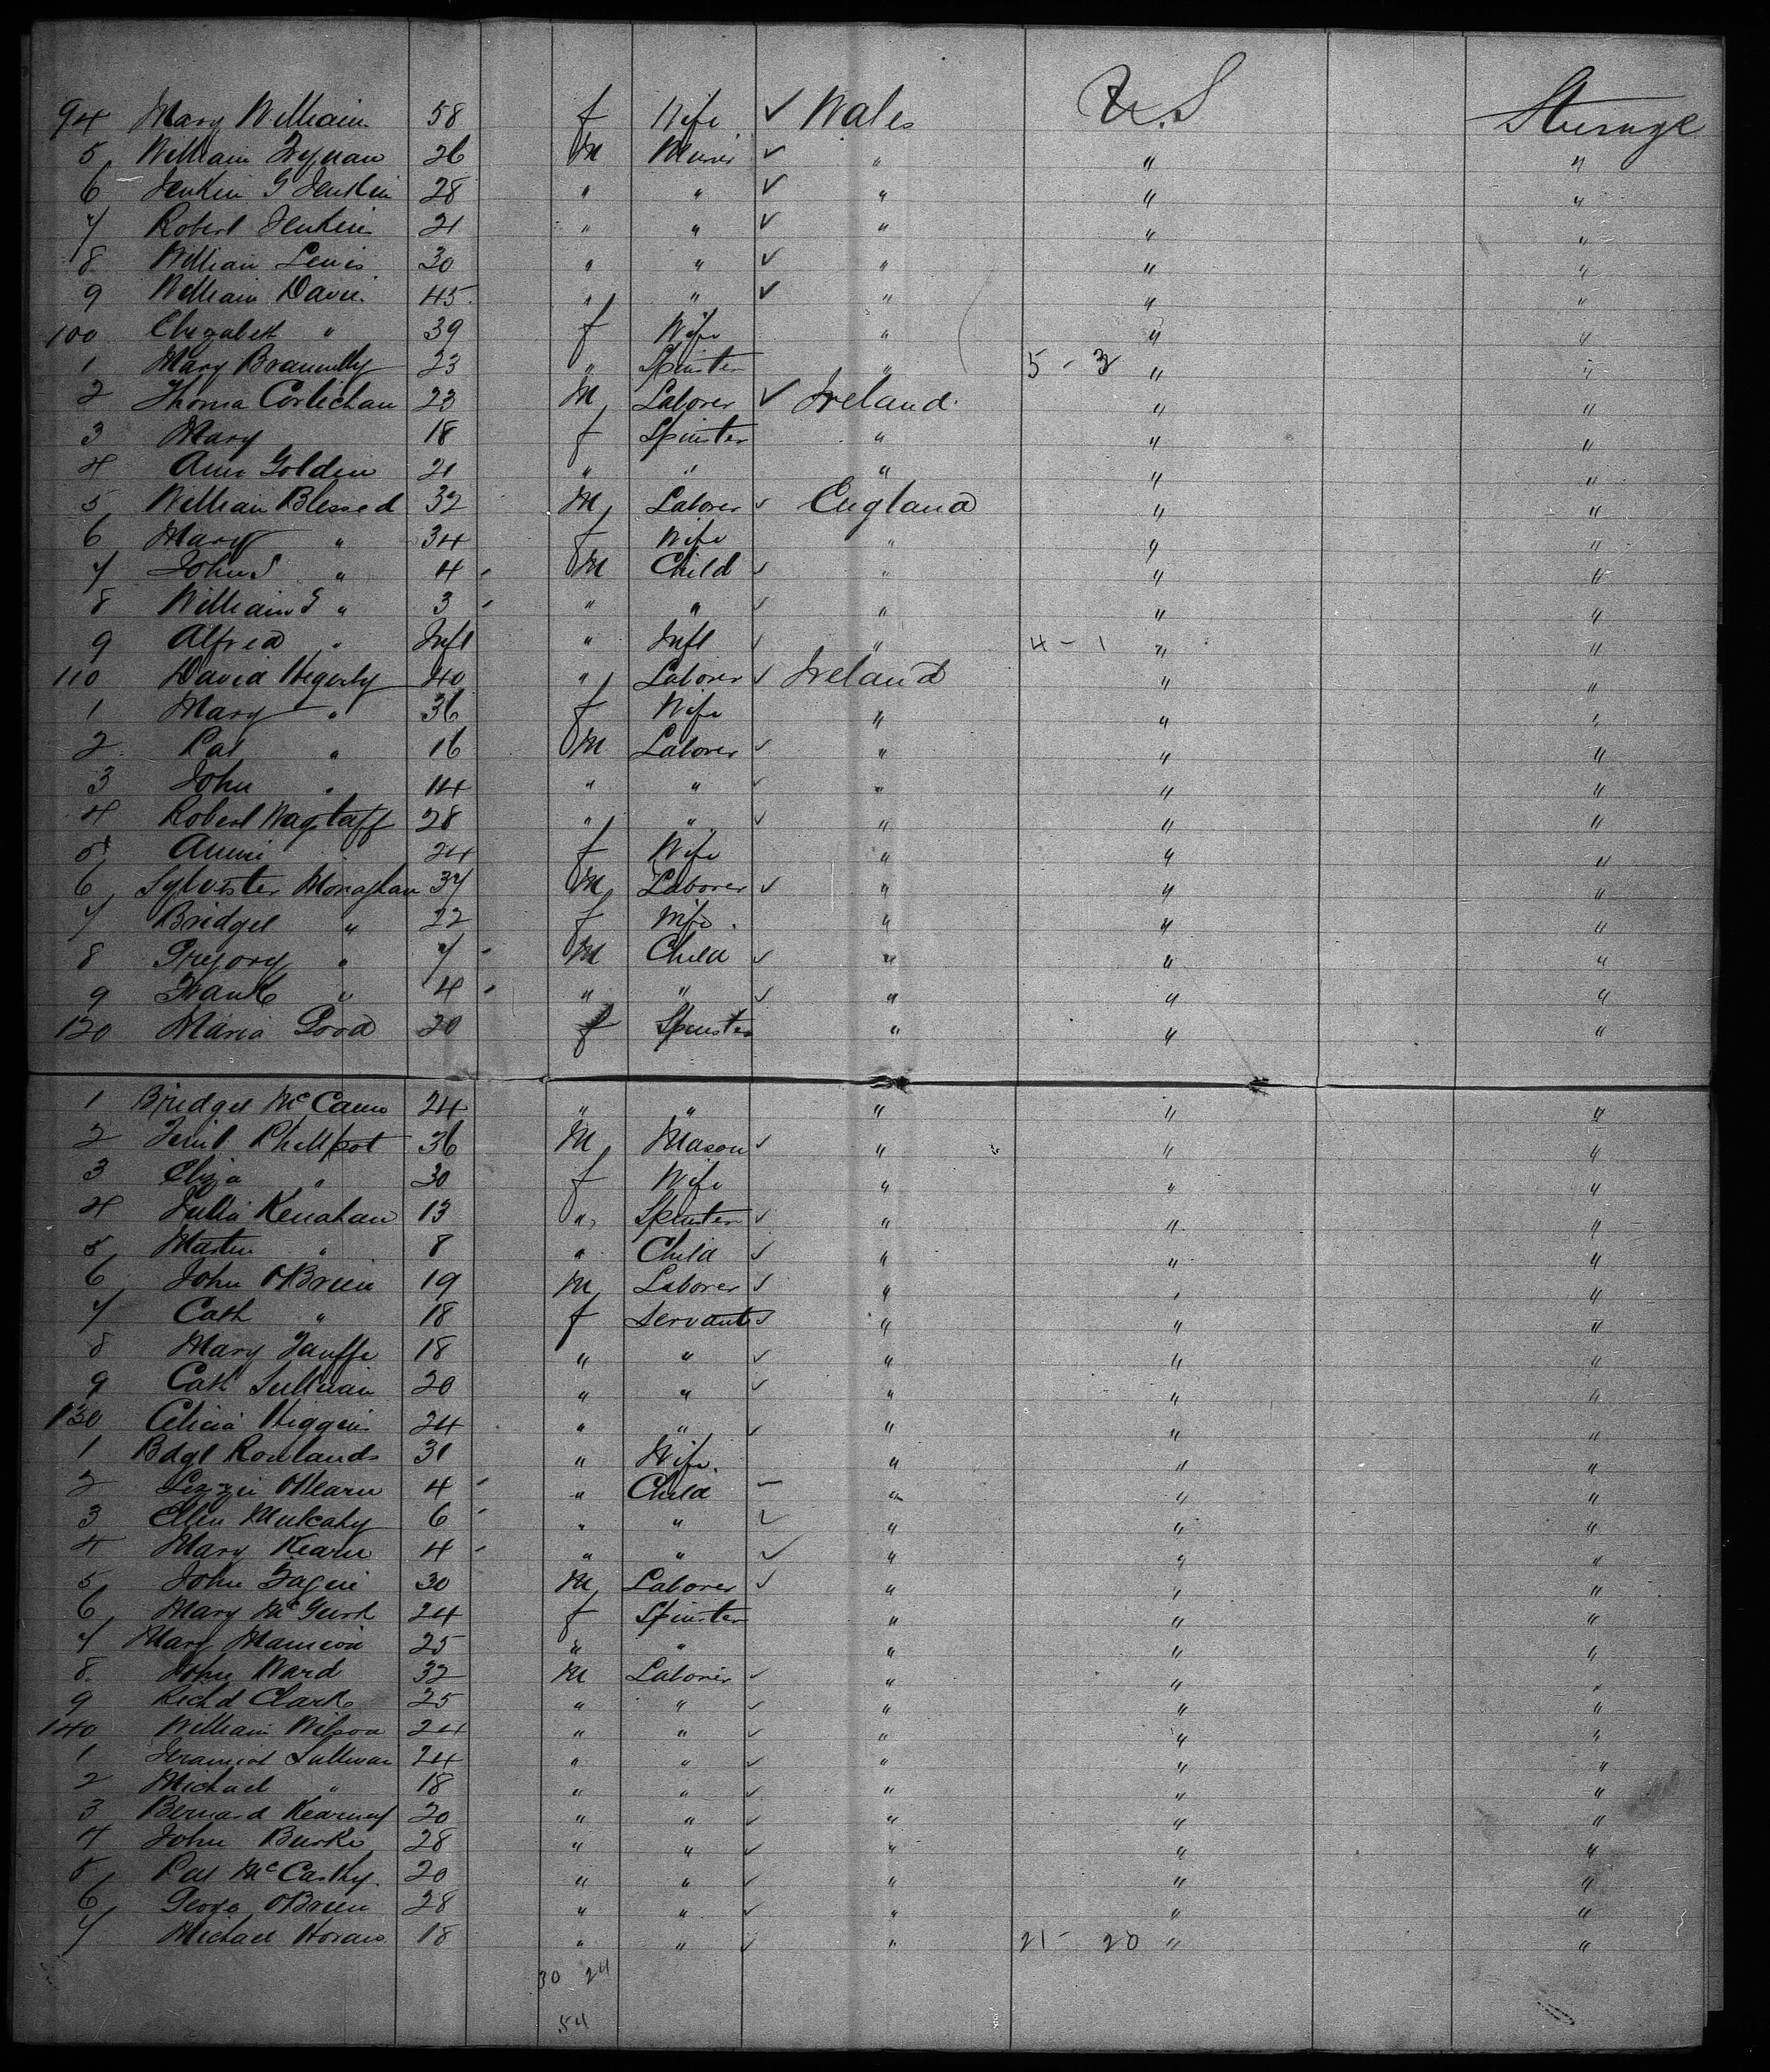 94 Mary William 58 f Wife ✓ Wales U.S Steerage
5 William 26 M Miner ✓ " " "
6 Jenkin G Jenkin 28 " " ✓ " " "
7 Robert Jenkin 21 " " ✓ " " "
8 William Lewis 30 " " ✓ " " "
9 William Davis 45 " " ✓ " " "
100 Elizabeth " 39 f Wife " " "
1 Mary Brannelly 23 " Spinster " 5 - 3 " "
2 Thoma Corlichan 23 M Laborer ✓ Ireland " "
3 Mary 18 f Spinster " " "
4 Ann Golden 21 " " " " "
5 William Blessed 32 M Laborer ✓ England " "
6 Mary " 34 f Wife " " "
7 John S " 4 M Child ✓ " " "
8 William G " 3 " " ✓ " " "
9 Alfred " Inft " Inft ✓ " 4 - 1 " "
110 David Hegerty 40 " Laborer ✓ Ireland " "
1 Mary " 36 f Wife " " "
2 Pat " 16 M Laborer ✓ " " "
3 John " 14 " " ✓ " " "
4 Robert Wagstaff 28 " " ✓ " " "
5 Annie 24 f Wife " " "
6 Sylvester Monaghan 37 M Laborer ✓ " " "
7 Bridget " 22 f Wife " " "
8 Gregory " 7 M Child ✓ " " "
9 Frank " 4 " " ✓ " " "
120 Maria Good 20 f Spinster " " "
1 Bridget McCann 24 " " " " "
2 Phillpot 36 M Mason ✓ " " "
3 Eliza " 30 f Wife " " "
4 Julia Kenahan 13 " Spinster ✓ " " "
5 Martin " 8 " Child ✓ " " "
6 John OBrien 19 M Laborer ✓ " " "
7 Cath " 18 f Servant ✓ " " "
8 Mary 18 " " ✓ " " "
9 Cath Sullivan 20 " " ✓ " " "
130 Celicia Higgins 24 " " ✓ " " "
1 Bdgt Rowlands 31 " Wife " " "
2 Lizzie OHearn 4 " Child – " " "
3 Ellen Mulcahy 6 " " ✓ " " "
4 Mary Kearn 4 " " ✓ " " "
5 John 30 M Laborer ✓ " " "
6 Mary McGurk 24 f Spinster " " "
7 Mary Mannion 25 " " " " "
8 John Ward 32 M Laborer ✓ " " "
9 Richd Clark 25 " " ✓ " " "
140 William Wilson 24 " " ✓ " " "
1 Jeramiah Sullivan 24 " " ✓ " " "
2 Michael " 18 " " ✓ " " "
3 Bernard Kearney 20 " " ✓ " " "
4 John Burke 28 " " ✓ " " "
5 Pat McCarthy 20 " " ✓ " " "
6 George OBrien 28 " " ✓ " " "
7 Michael Horan 18 " " ✓ " 21 - 20 " "
30 24
54